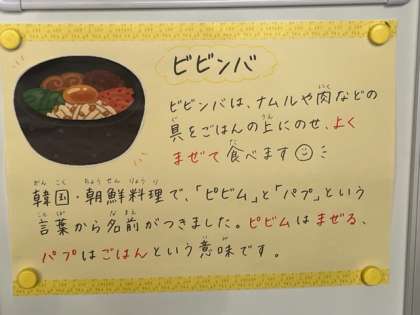 ビビンバ
ビビンバは、ナムルや肉などの
具をごはんの上にのせ、よく
まぜて食べます
韓国・朝鮮料理で、「ピビム」と「パプ」という
言葉から名前がつきました。ピビムはまぜる、
パプはごはんという意味です。